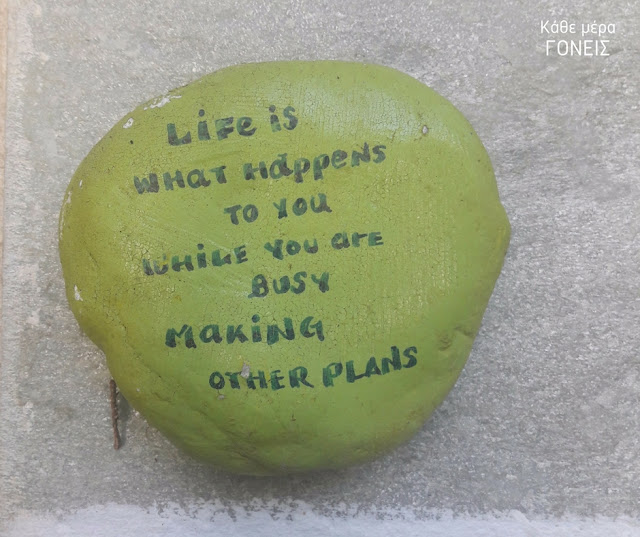 Κάθε μέρα
ΓΟΝΕΙΣ
Life is
what happens
to you
while you are
busy
making
other plans